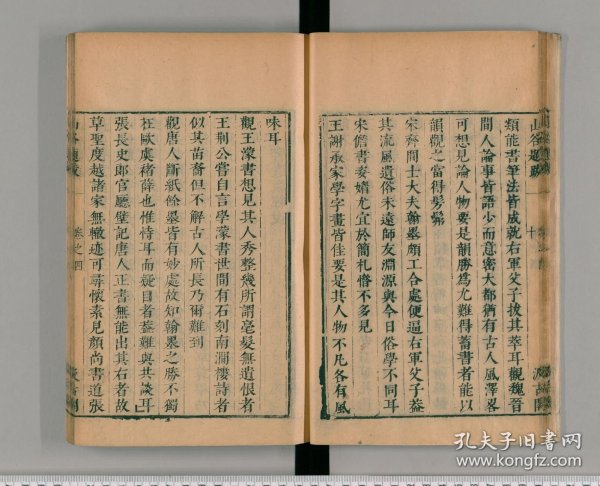 山谷題跋
類能書筆法皆成就右軍父子拔其萃耳觀魏晉
間人論事皆語少而意密大都猶有古人風澤畧
可想見論人物要是韻勝為尤難得蓄書者能以
韻觀之當得髣髴
宋齊間士大夫翰墨頗工合處便逼右軍父子蓋
其流風遺俗未遠師友淵源與今日俗學不同耳
宋儋書姿媚尤宜於簡札惜不多見
王謝承家學字畫皆佳要是其人物不凡各有風
味耳
觀王濛書想見其人秀整幾所謂毫髮無遺恨者
王荆公嘗自言學濛書世間有石刻南澗樓詩者
似其苗裔但不解古人所長乃爾難到
觀唐人斷紙餘墨皆有妙處故知翰墨之勝不獨
在歐虞褚薛也惟恃耳而疑目者蓋難與共談耳
張長史郎官廳壁記唐人正書無能出其右者故
草聖度越諸家無轍迹可尋懷素見顔尚書道張
山谷題跋
卷之四
孔夫子旧书网
www.kongfz.com